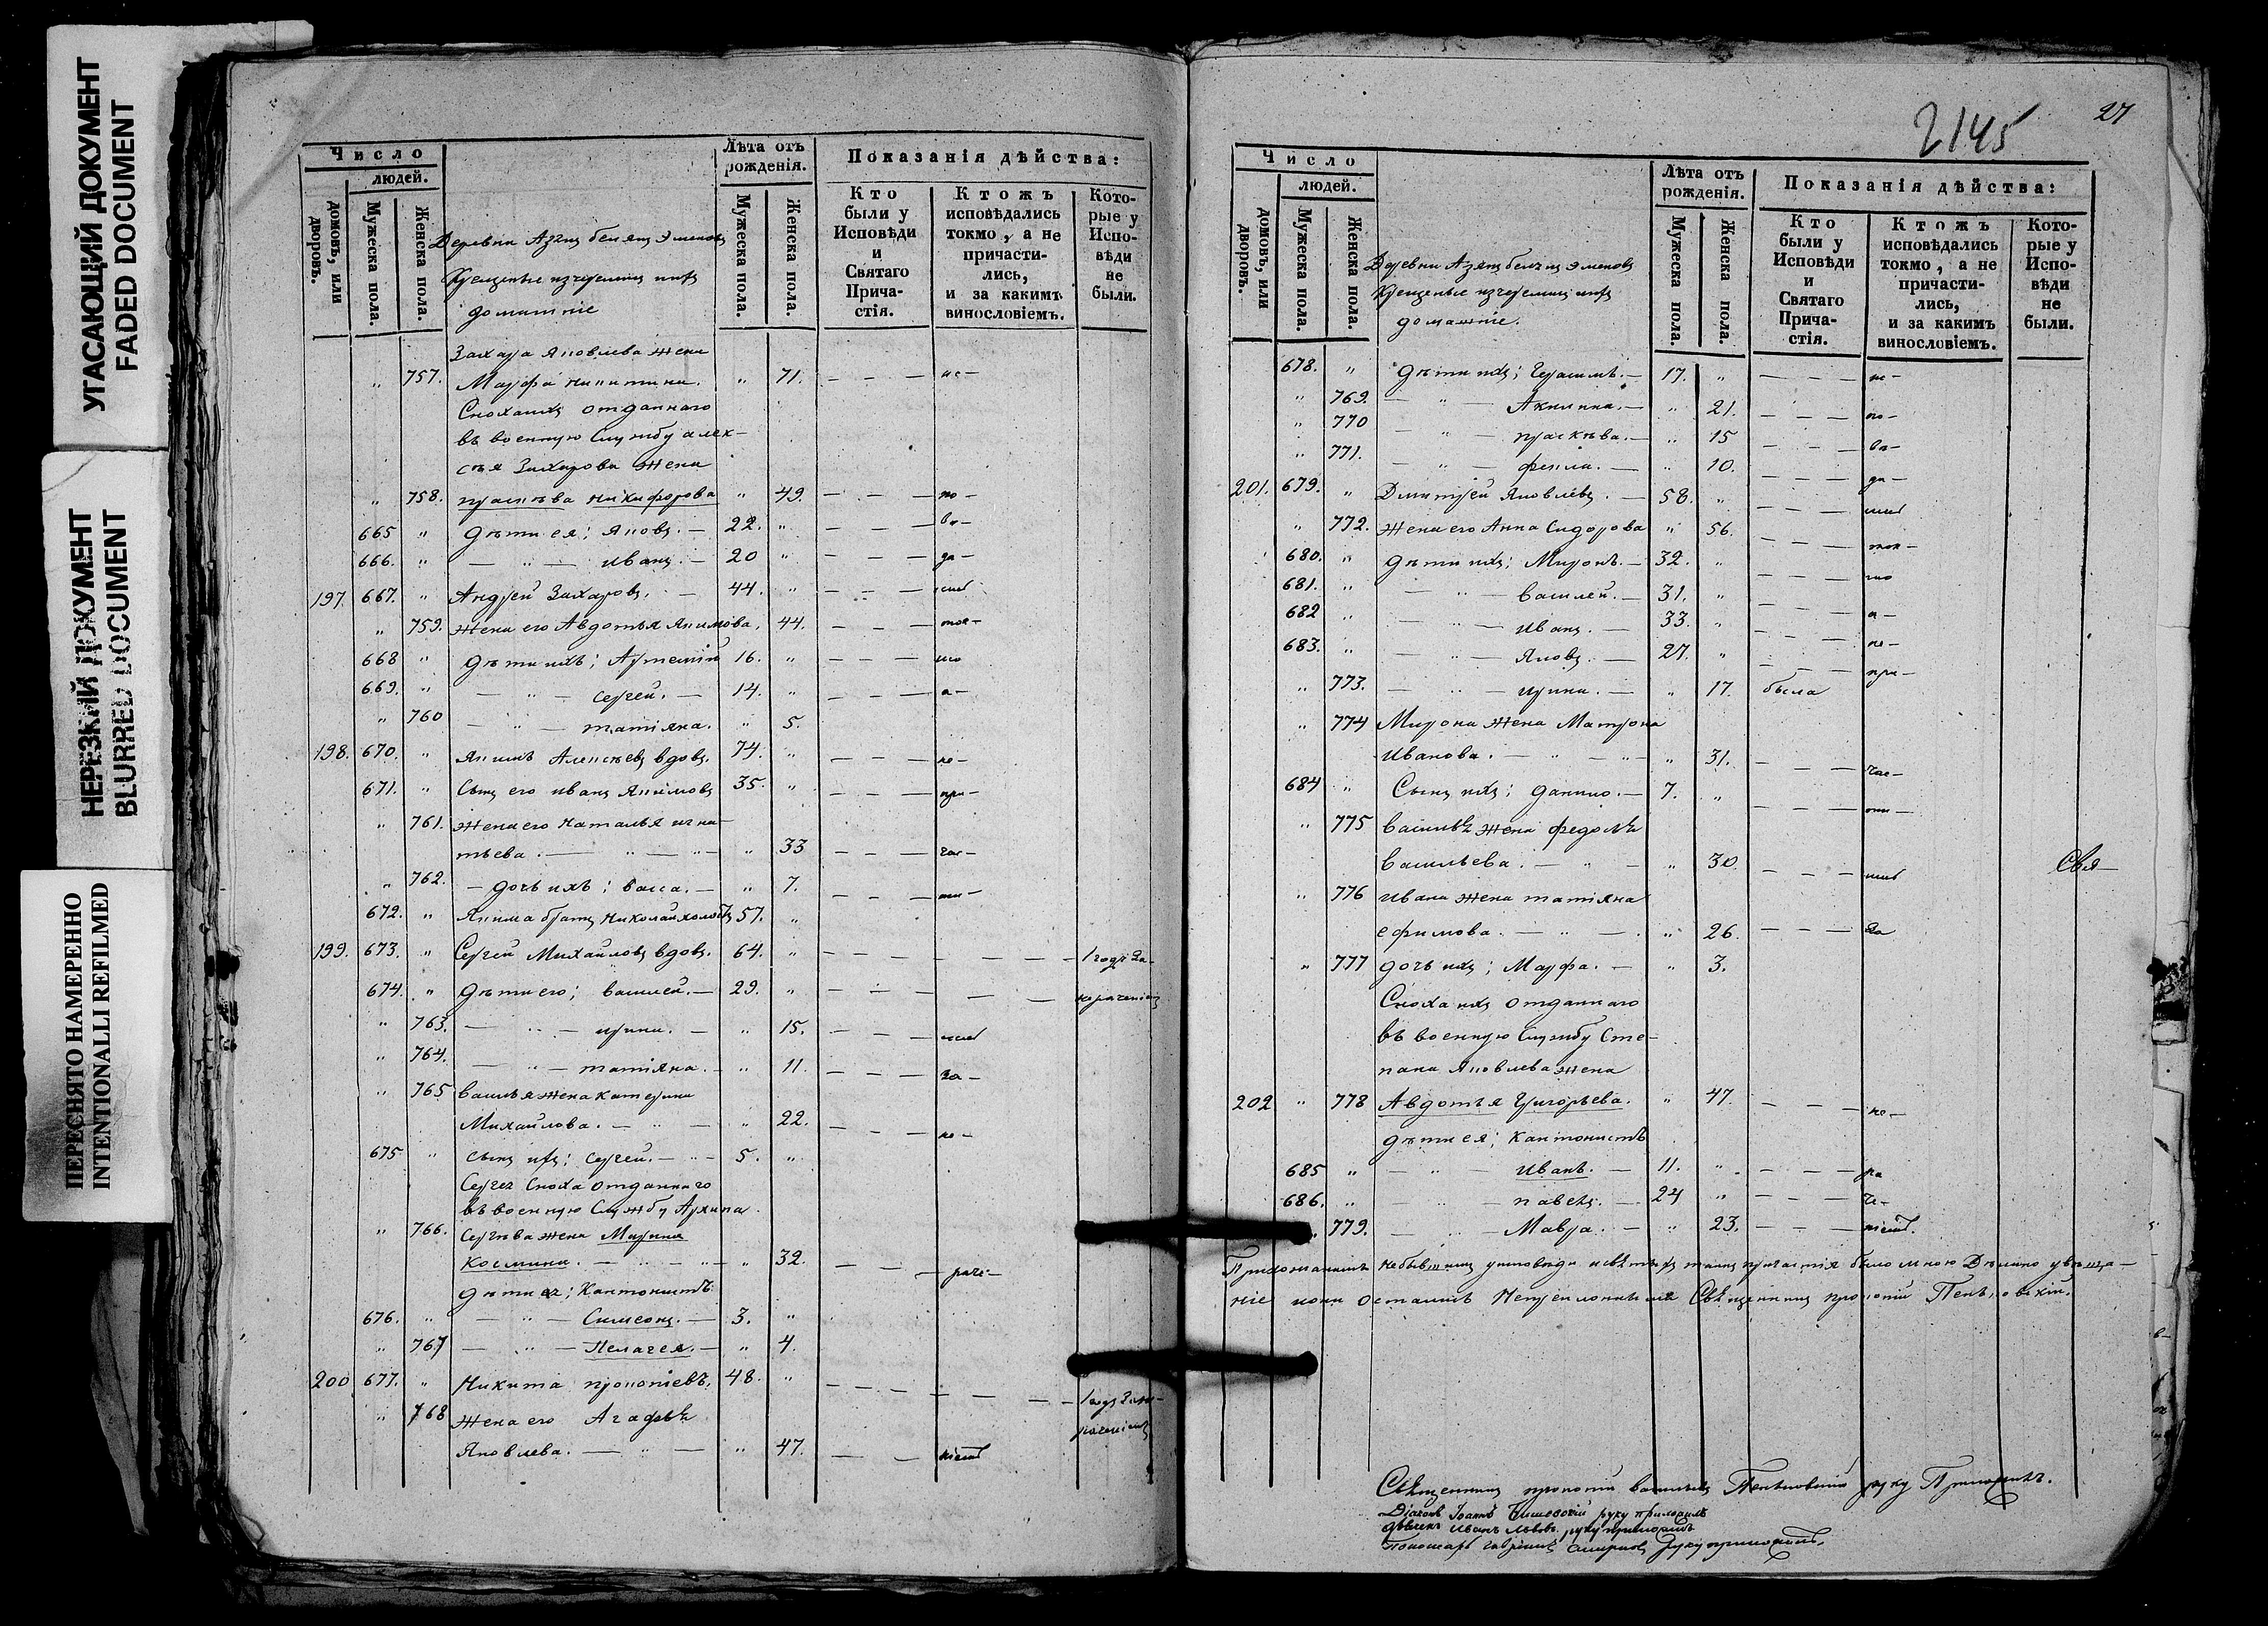 УГАСАЮЩИЙ ДОКУМЕНТ
FADED DOCUMENT
НЕРЕЗКИЙ ДОКУМЕНТ
BLURRED DOCUMENT
ПЕРЕСНЯТО НАМЕРЕННО
INTENTIONALLI REFILMED
Число
людей.
домовъ, или дворовъ.
Мужеска пола.
Женска пола.
Лѣта отъ рожденія.
Мужеска пола.
Женска пола.
Показанія дѣйства:
Кто были у Исповѣди и Святаго Прича-стія.
Ктожъ исповѣдались токмо, а не причасти-лись, и за какимъ винословіемъ.
Кото-рые у Испо-вѣди не были.
Деревни
домашніе
Захара Яковлева жена
" 757. Марфа Никитина. " 71. — — — не —
Сноха ихъ отданнаго
въ военную Службу Алек-
сѣя Захарова жена
" 758. Прасковья Никифорова " 49. — — — по —
665 " Дѣти ея; Яковъ. — 22. " — — — ва —
666. " — " — Иванъ. — 20 " — — — да —
197. 667. " Андрей Захаровъ. — 44. " — — —
" 759. Жена его Авдотья Акимова. 44. — — — ток —
668 " Дѣти ихъ; Артемій 16. " — — — мо
669. " — " — Сергей. — 14. " — — — а —
" 760 — " — Татіяна. " 5.
198. 670. " Якимъ Алексѣевъ вдовъ. 74. " — — — не —
671. " Сынъ его Иванъ Якимовъ 35. " — — — при —
" 761. Жена его Наталья Игна-
тьева. — " — " — " 33 — — — час —
" 762. — дочь ихъ; Васса. — " 7. — — — ти —
672. " Якима братъ Николай холостъ 57. "
199. 673. " Сергей Михайловъ вдовъ. 64. " — — — — — — 1 годъ за
674. " Дѣти его; Василей. — 29. " — — — — —
" 763. — " — Ирина. — " 15. — — —
" 764. — " — Татіяна. — " 11. — — — за —
" 765 Василья жена Катерина
Михайлова. — " — " 22. — — — не —
675 " Сынъ ихъ; Сергей. — " — 5. "
Сергея Сноха отданнаго
въ военную Службу Архипа
" 766. Сергѣева жена Марина
Космина. — " — " — " 32. — — — раче —
Дѣти ея; Кантонистъ
676. " — " — Симеонъ. — 3. "
" 767 — " — Пелагея. — " 4.
200 677. " Никита Прокопіевъ. 48. " — — — — — — 1 годъ за не-
раченіемъ
" 768 Жена его Агафья
Яковлева. — " — " 47. — — — ніемъ
2145
27
Число
людей.
домовъ, или дворовъ.
Мужеска пола.
Женска пола.
Лѣта отъ рожденія.
Мужеска пола.
Женска пола.
Показанія дѣйства:
Кто были у Исповѣди и Святаго Прича-стія.
Ктожъ исповѣдались токмо, а не причасти-лись, и за какимъ винословіемъ.
Кото-рые у Испо-вѣди не были.
Деревни
домашніе.
678. " Дѣти ихъ; Герасимъ. — 17. " — — — не —
" 769. — " — Акилина. — " 21. — — — по —
" 770 — " — Прасковья. — " 15 — — — ва —
" 771. — " — Фекла. — " 10. — — — да —
201. 679. " Дмитрей Яковлевъ. — 58. " — — —
" 772. Жена его Анна Сидорова " 56. — — — ток —
680. " Дѣти ихъ; Миронъ. — 32. " — — — мо
681. " — " — Василей. — 31. " — — — а —
682 " — " — Иванъ. — 33. " — — — не —
683. " — " — Яковъ. — 27. " — — — при —
" 773. — " — Ирина. — " 17. была
" 774 Мирона жена Матрона
Иванова. — " — " — " 31. — — — час —
684 " Сынъ ихъ; Данило. — 7. " — — — ти —
" 775 Василья жена Федосья
Васильева. — " — " 30. — — — Свя —
" 776 Ивана жена Татіяна
Ефимова. — " — . " 26. — — — за
" 777 Дочь ихъ; Марфа. — " 3.
Сноха ихъ отданнаго
въ военную Службу Сте-
пана Яковлева жена
202 " 778 Авдотья Григорьева. " 47. — — — не —
Дѣти ея; Кантонистъ
685 " — " — Иванъ. — 11. " — — — ра
686. " — " — Павелъ. — 24 " — — — че —
" 779. — " — Мавра. — " 23. — — — ніемъ.
Прихожанамъ небывшимъ у исповѣди и святыхъ таинъ причастія было мною Дѣлано увѣща-
ніе но они остались Непреклонными Священникъ Прокопій
Священникъ Прокопій Васильевъ руку Приложилъ.
Діаконъ Іоаннъ руку приложилъ
Дьячекъ Иванъ Львовъ руку приложилъ
Пономарь Гавріилъ Смирновъ руку приложилъ.